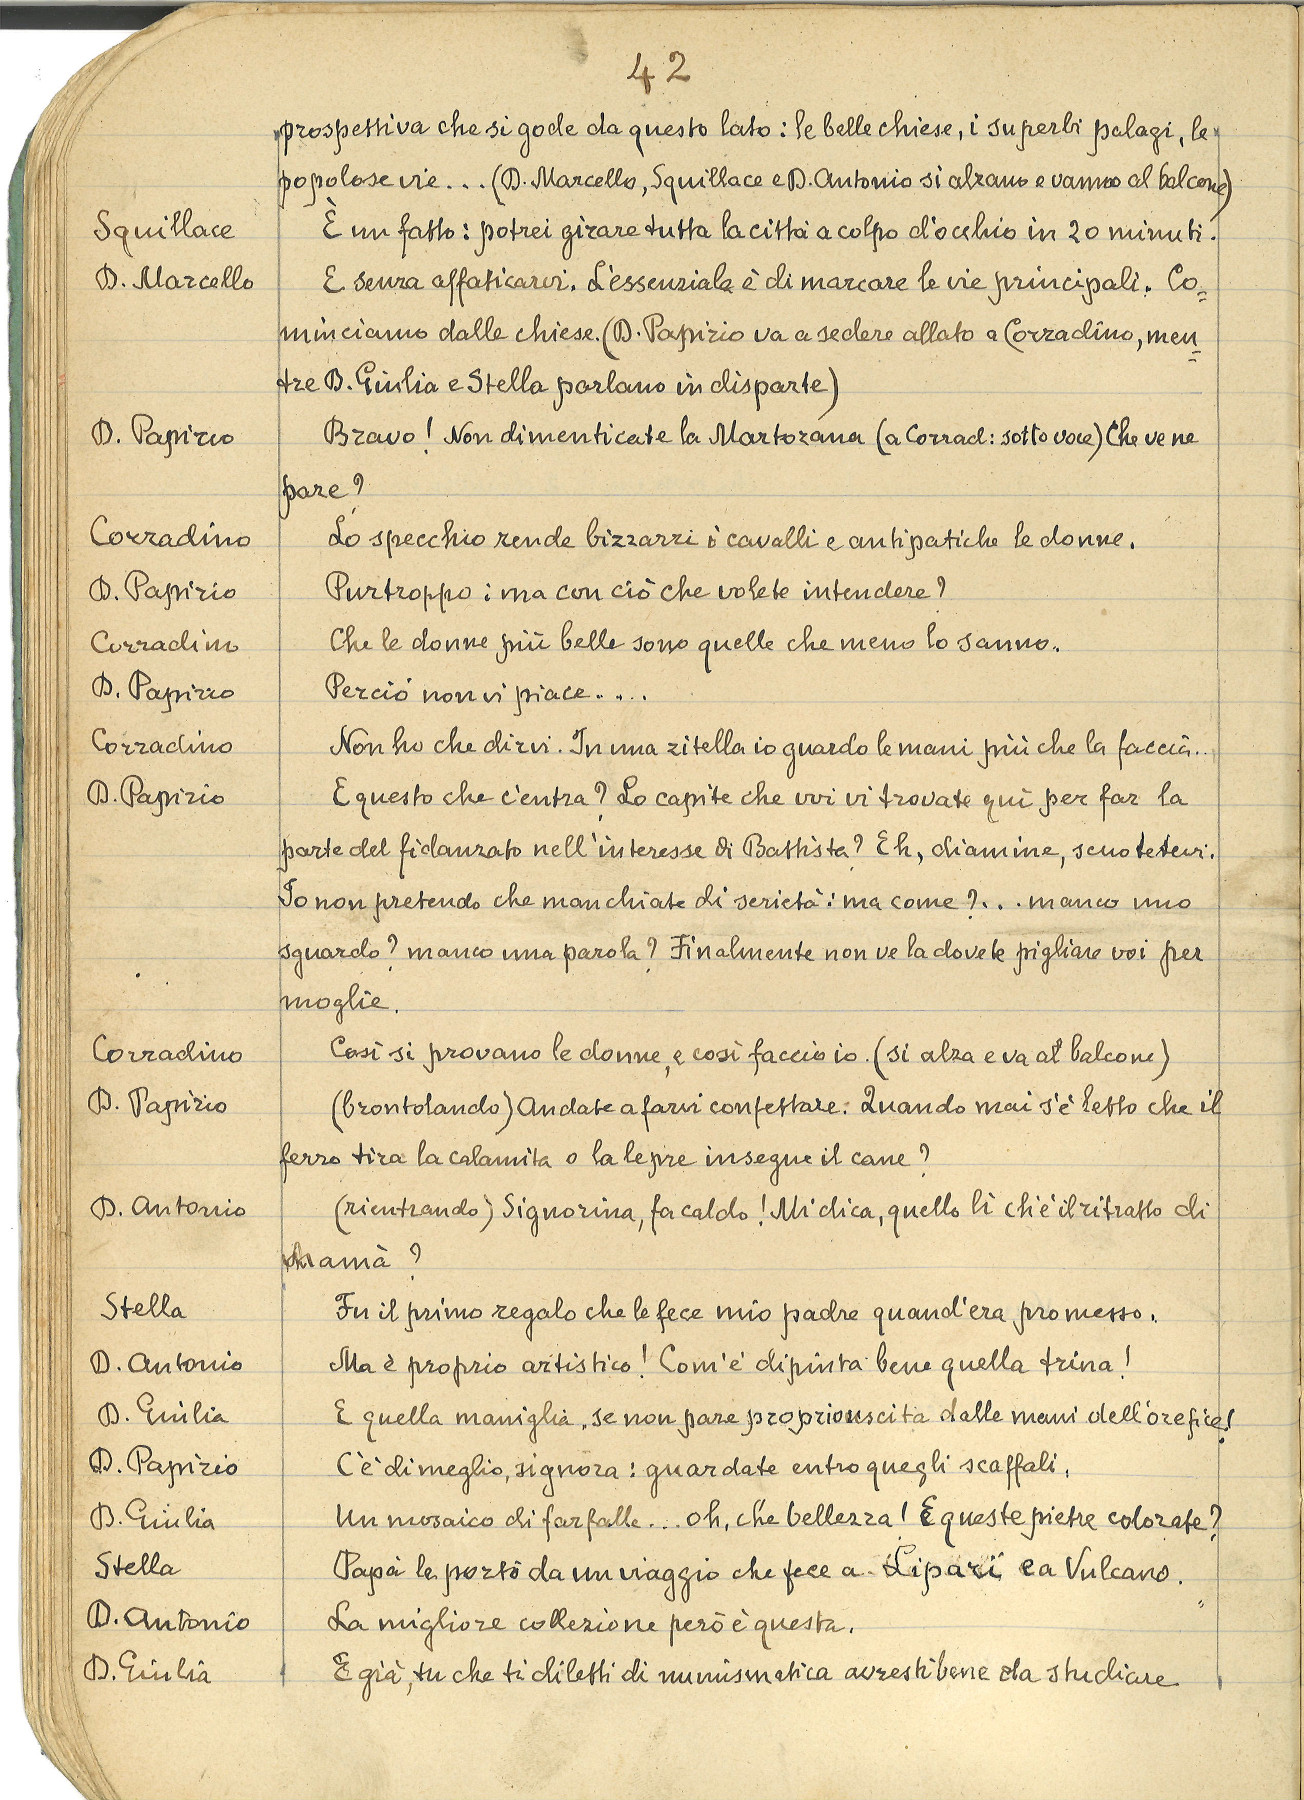 42
prospettiva che si gode da questo lato: le belle chiese, i superbi palagi, le
popolose vie... (D. Marcello, Squillace e D. Antonio si alzano e vanno al balcone)
Squillace È un fatto: potrei girare tutta la città a colpo d'occhio in 20 minuti.
D. Marcello E senza affaticarvi. L'essenziale è di marcare le vie principali. Co=
minciamo dalle chiese. (D. Papirio va a sedere allato a Corradino, men=
tre D. Giulia e Stella parlano in disparte)
D. Papirio Bravo! Non dimenticate la Martorana (a Corrad: sotto voce) Che ve ne
pare?
Corradino Lo specchio rende bizzarri i cavalli e antipatiche le donne.
D. Papirio Purtroppo: ma con ciò che volete intendere?
Corradino Che le donne più belle sono quelle che meno lo sanno.
D. Papirio Perciò non vi piace....
Corradino Non ho che dirvi. In una zitella io guardo le mani più che la faccia..
D. Papirio E questo che c'entra? Lo capite che voi vi trovate quì per far la
parte del fidanzato nell'interesse di Battista? Eh, diamine, scuotetevi.
Io non pretendo che manchiate di serietà: ma come?... manco uno
sguardo? manco una parola? Finalmente non ve la dovete pigliare voi per
moglie.
Corradino Così si provano le donne, e così faccio io. (si alza e va al balcone)
D. Papirio (brontolando) Andate a farvi confettare. Quando mai s'è letto che il
ferro tira la calamita o la lepre insegue il cane?
D. Antonio (rientrando) Signorina, fa caldo! Mi dica, quello lì ch'è il ritratto di
mamà?
Stella Fu il primo regalo che le fece mio padre quand'era promesso.
D. Antonio Ma è proprio artistico! Com'è dipinta bene quella trina!
D. Giulia E quella maniglia, se non pare proprio uscita dalle mani dell'orefice!
D. Papirio C'è di meglio, signora: guardate entro quegli scaffali.
D. Giulia Un mosaico di farfalle... oh, che bellezza! E queste pietre colorate?
Stella Papà le portò da un viaggio che fece a Lipari e a Vulcano.
D. Antonio La migliore collezione però è questa.
D. Giulia E già, tu che ti diletti di numismatica avresti bene da studiare